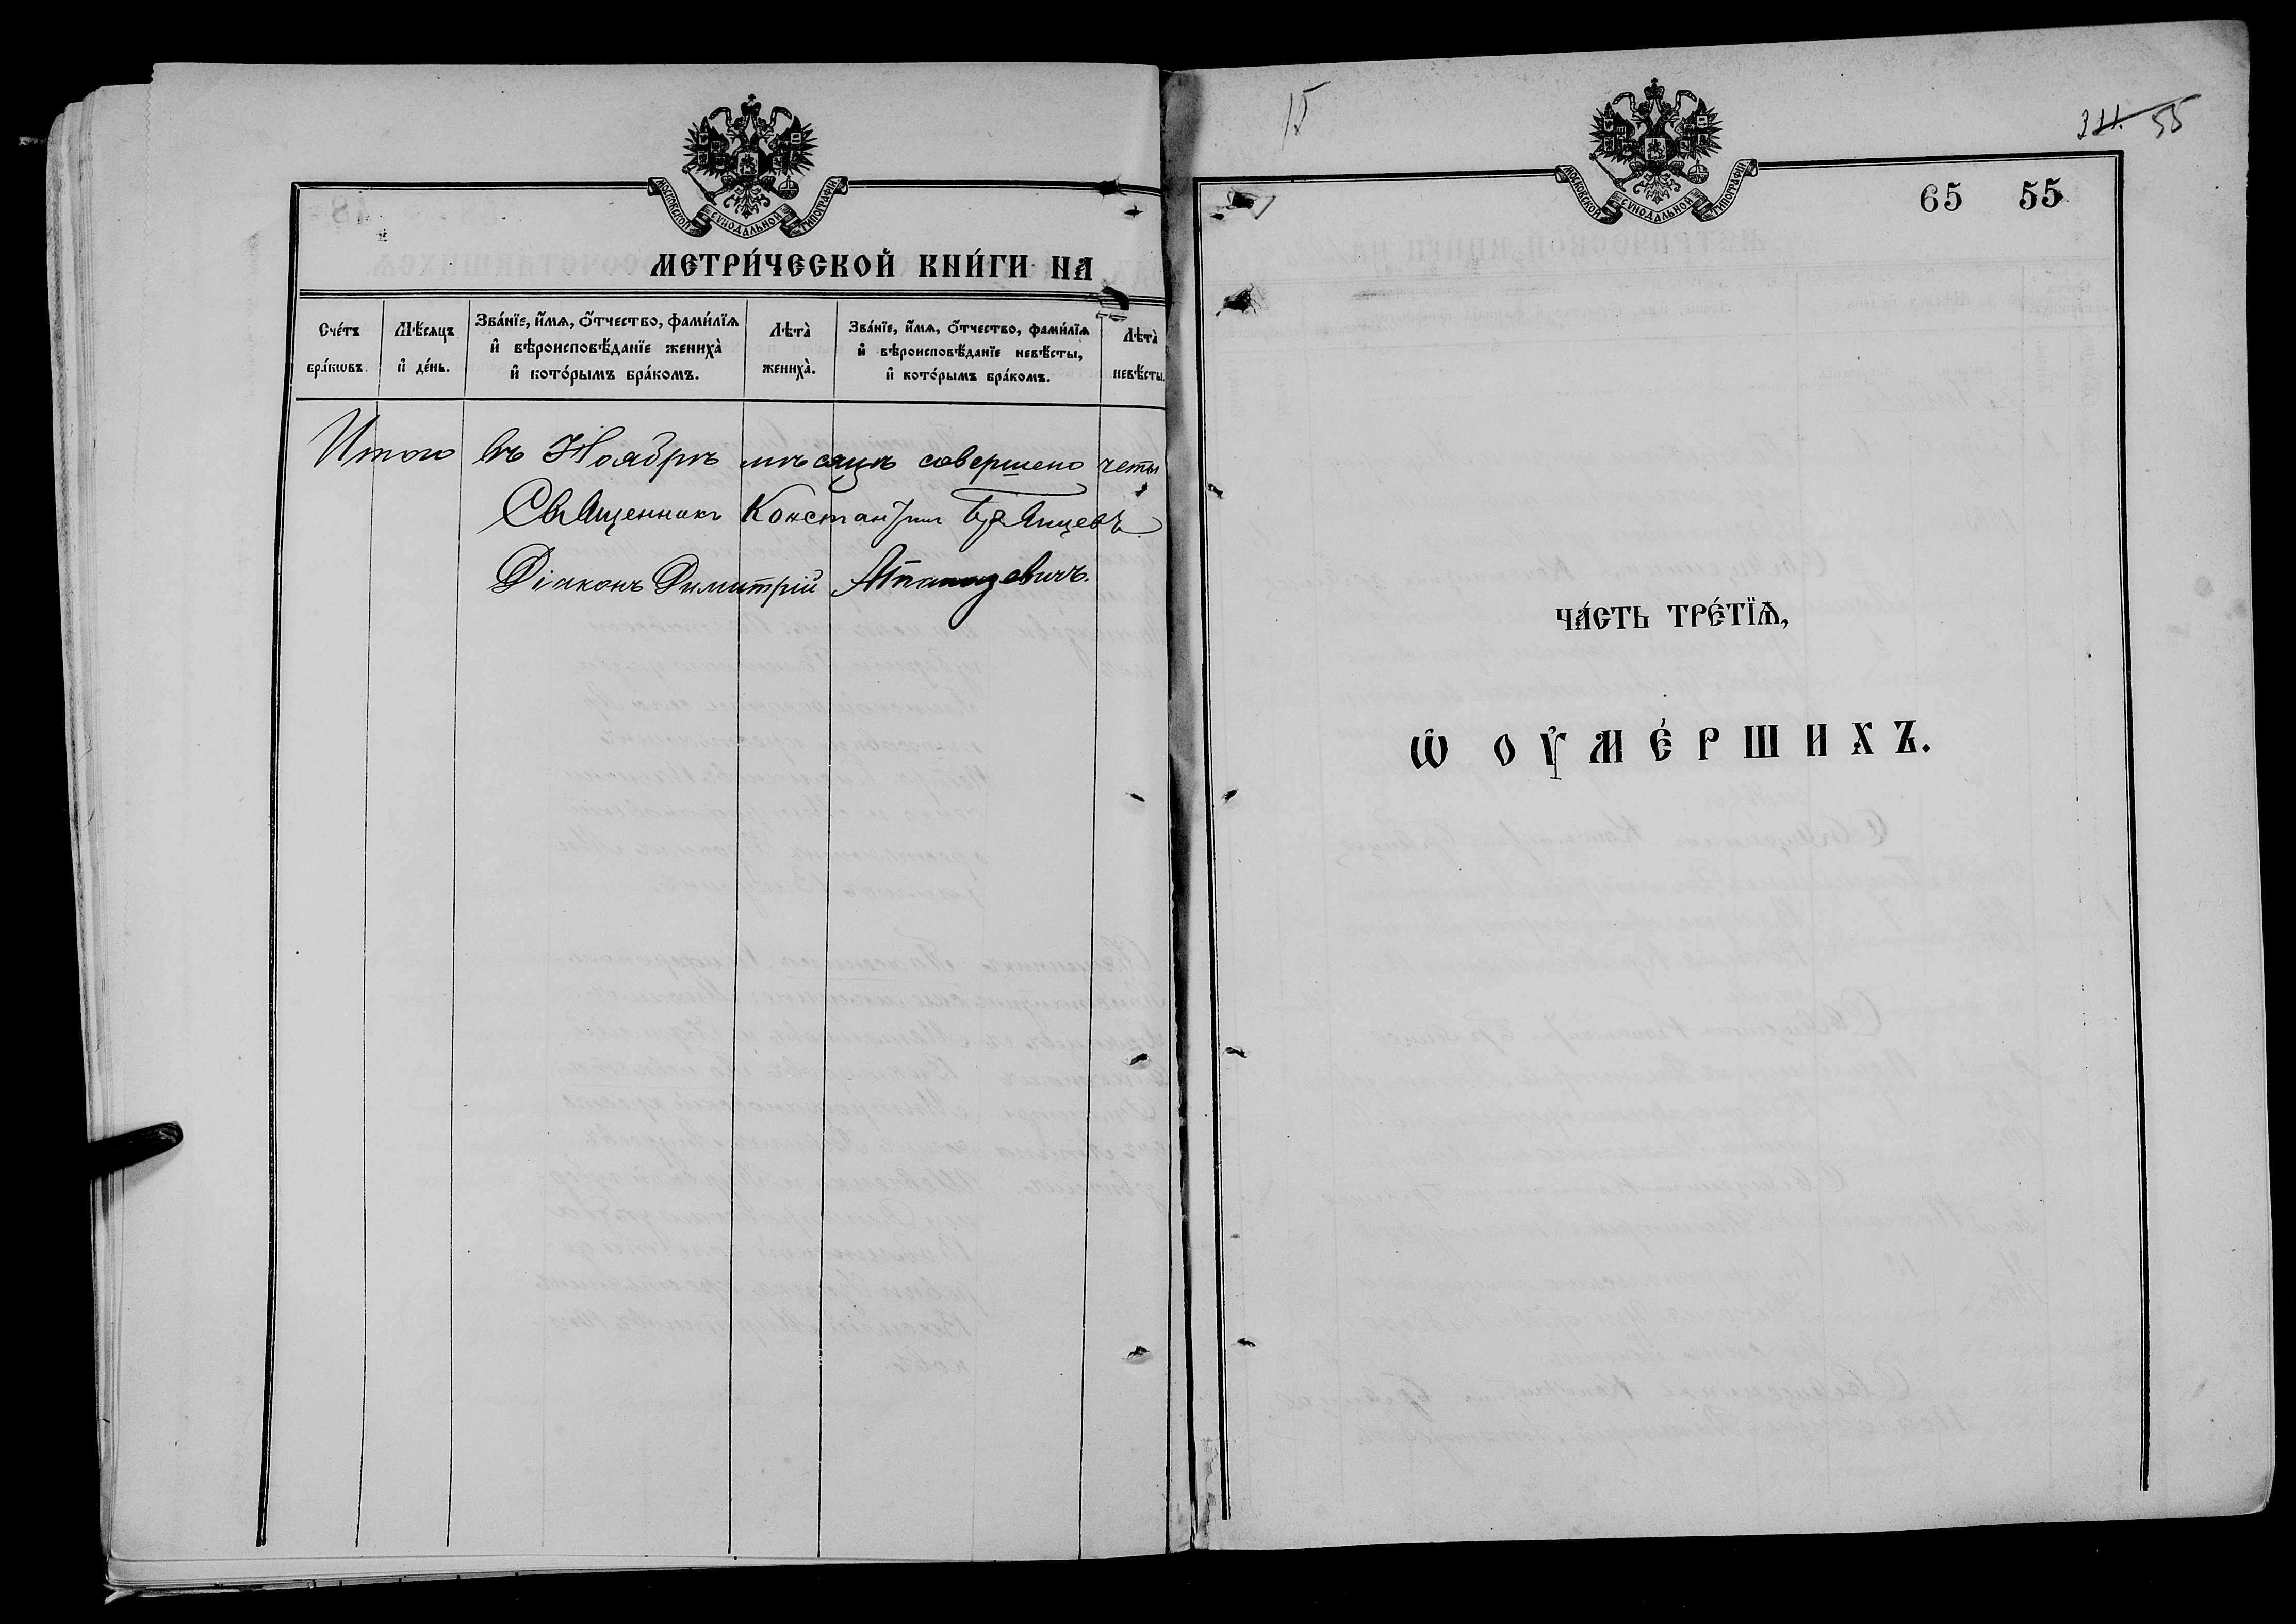 МОСКОВСКОЙ СѴНОДАЛЬНОЙ ТИПОГРАФІИ
МЕТРИ́ЧЕСКОЙ КНИ́ГИ НА
Сче́тъ бра́кѡвъ.
Мѣ́сяцъ и҆ де́нь.
Зва́нїе, и҆́мѧ, ѻ҆́тчество, фами́лїѧ
и҆ вѣроисповѣ́данїе жениха̀
и҆ кото́рымъ бра́комъ.
Лѣта̀ жениха̀.
Зва́нїе, и҆́мѧ, ѻ҆́тчество, фами́лїѧ
и҆ вѣроисповѣ́данїе невѣ́сты,
и҆ кото́рымъ бра́комъ.
Лѣта̀ невѣ́сты.
Итого въ Ноябрѣ мѣсяцѣ совершено четы
Священникъ Константин Брянцевъ
Діаконъ Димитрій
15
311. 55
МОСКОВСКОЙ СѴНОДАЛЬНОЙ ТИПОГРАФІИ
65 55
ЧА́СТЬ ТРЕ́ТЇѦ,
Ѡ҆ ОУ҆МЕ́РШИХЪ.